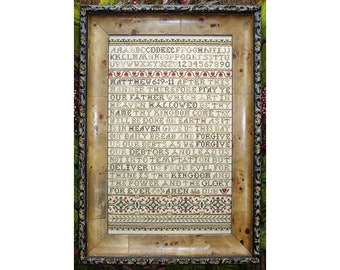 AABBCCDDEEFFGGHHIIJJ
KKLLMMNNOOPPQQRRSSTTU
UVVWWXXYYZZ1234567890
MATTHEW 6:9-11 AFTER THIS
MANNER THEREFORE PRAY YE
OUR FATHER WHICH ART IN
HEAVEN HALLOWED BE THY
NAME THY KINGDOM COME THY
WILL BE DONE ON EARTH AS IT
IS IN HEAVEN GIVE US THIS DAY
OUR DAILY BREAD AND FORGIVE
US OUR DEBTS AS WE FORGIVE
OUR DEBTORS AND LEAD US
NOT INTO TEMPTATION BUT
DELIVER US FROM EVIL FOR
THINE IS THE KINGDOM AND
THE POWER AND THE GLORY
FOR EVER AMEN